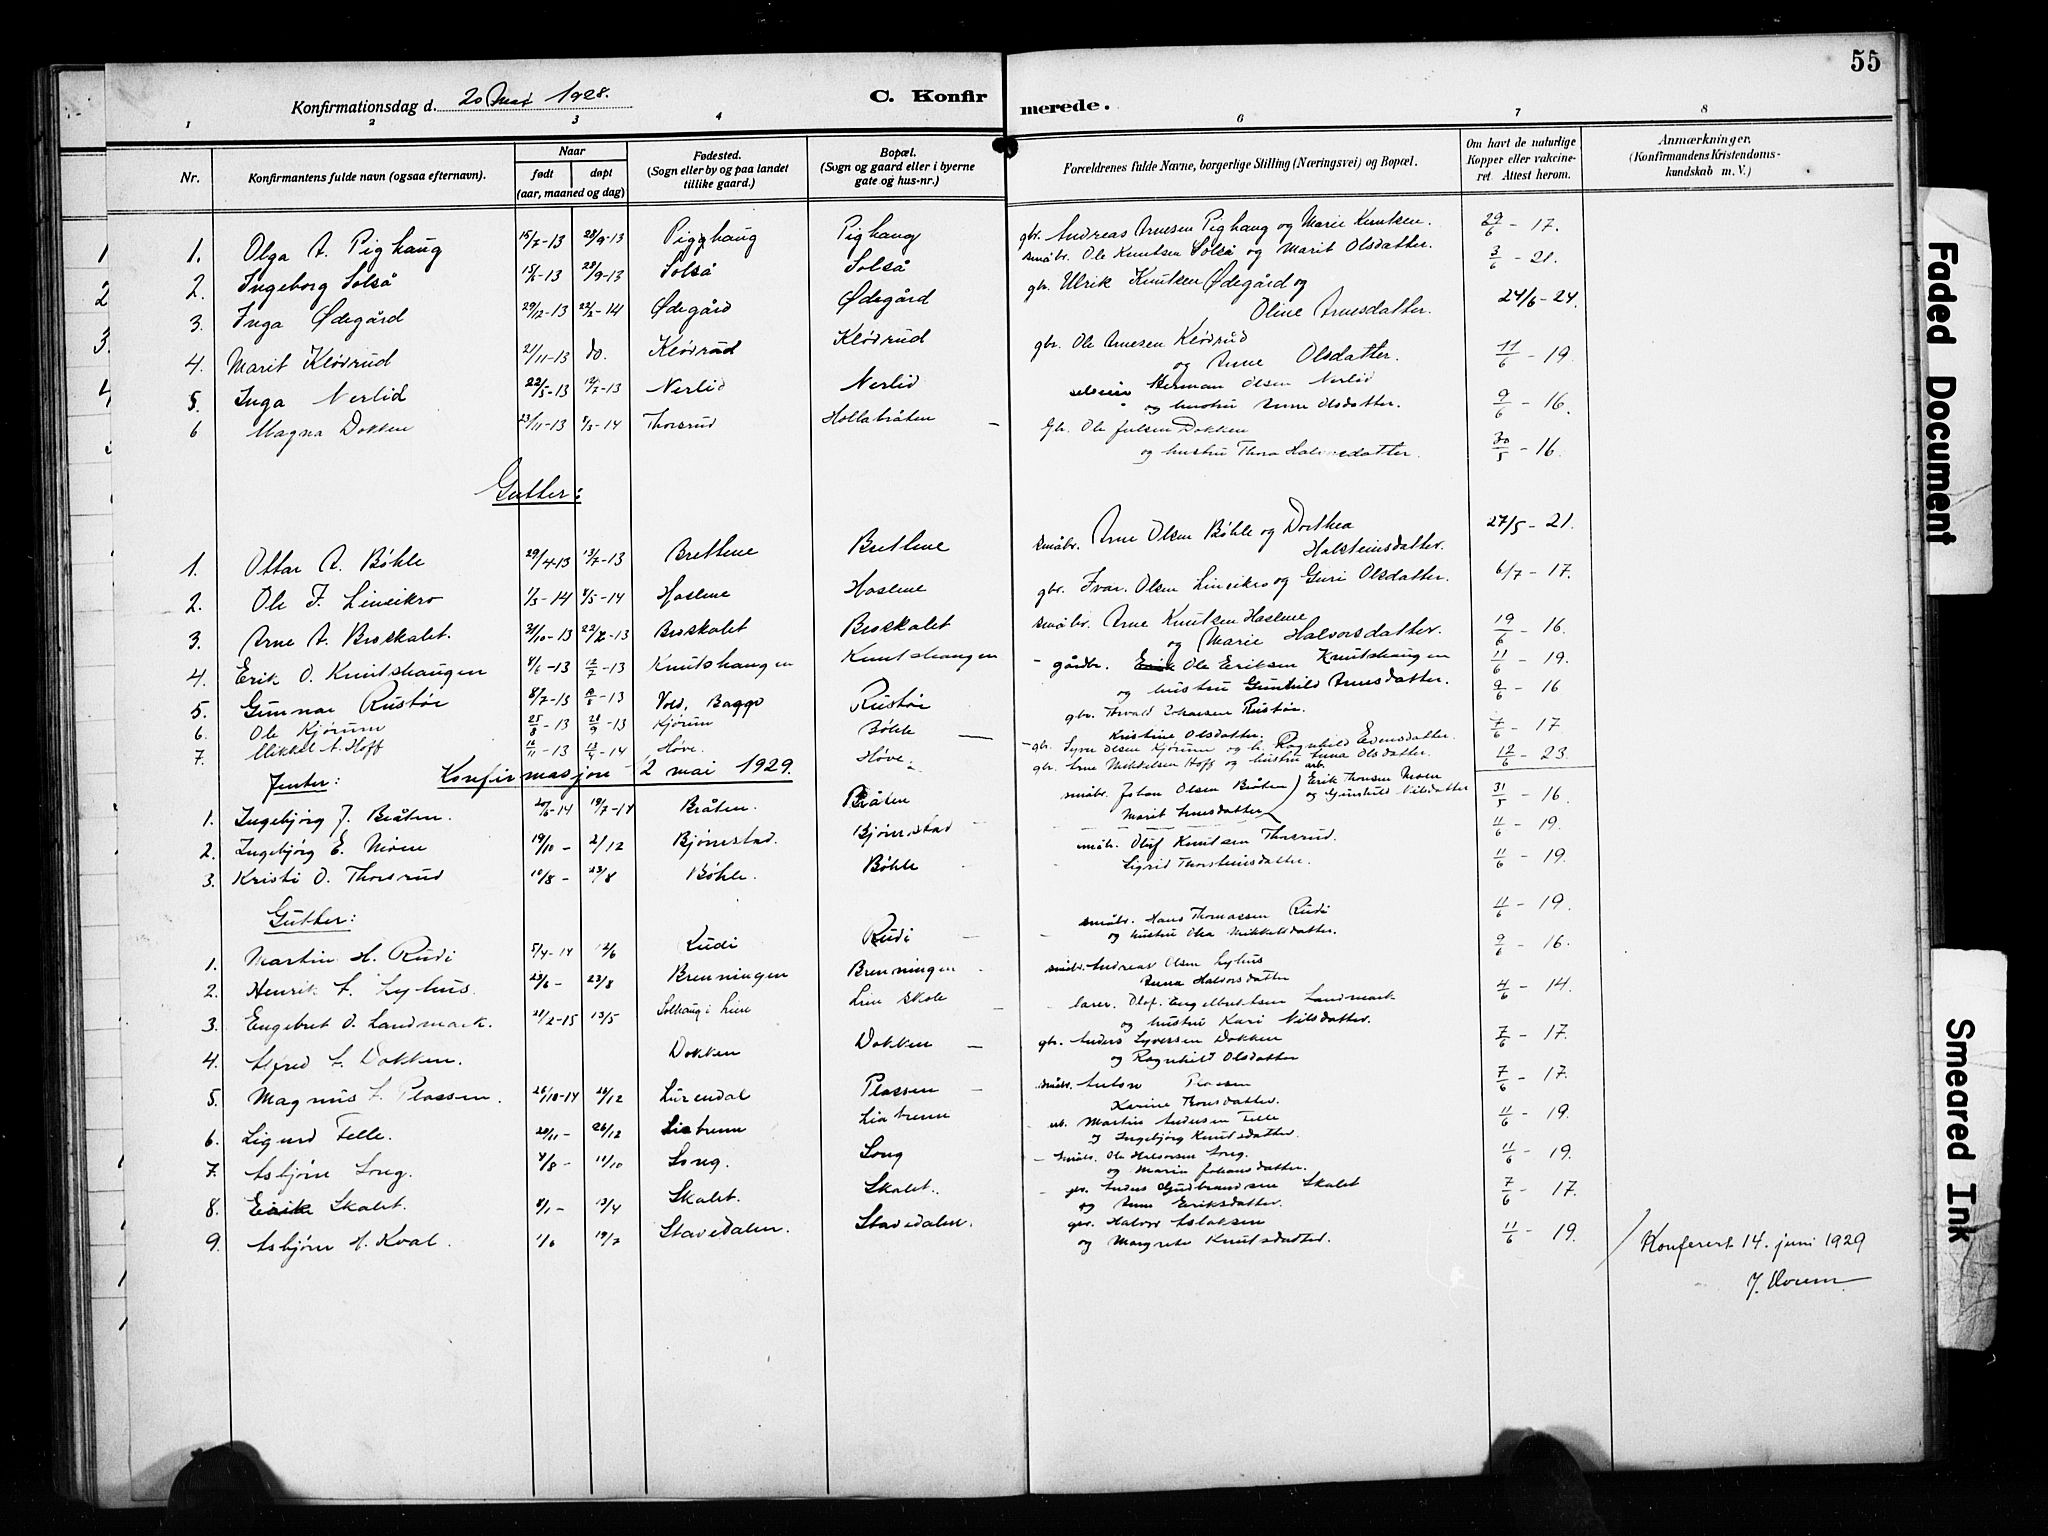 55
Konfirmationsdag d. 20 Mai 1928.
C. Konfirmerede.
1 2 3 4 5 6 7 8
Nr. Konfirmantens fulde navn (ogsaa efternavn). Naar født døpt (aar, maaned og dag) Fødested. (Sogn eller by og paa landet tillike gaard.) Bopæl. (Sogn og gaard eller i byerne gate og hus-nr.) Forældrenes fulde Navne, borgerlige Stilling (Næringsvei) og Bopæl. Om havt de naturlige Kopper eller vakcineret. Attest herom. Anmærkninger. (Konfirmandens Kristendomskundskab m. V.)
1. Olga A. Pighaug 15/7-13 28/9-13 Pighaug Pighaug gbr. Andreas Arnesen Pighaug og Marie Knutsen. 29/6 - 17.
2. Ingeborg Solså 15/6-13 28/9-13 Solså Solså småbr. Ole Knutsen Solså og Marit Olsdatter. 3/6 - 21.
3. Inga Ødegård 29/12-13 22/2-14 Ødegård Ødegård gbr. Ulrik Knutsen Ødegård og
Oline Arnesdatter. 24/6 - 24.
4. Marit Klødrud 21/11-13 do. Klødrud Klødrud gbr. Ole Arnesen Klødrud
og Anne Olsdatter. 11/6 - 19.
5. Inga Nerlid 22/5-13 13/7-13 Nerlid Nerlid Herman Olsen Nerlid
og hustru Anne Olsdatter. 9/6 - 16.
6 Magna Dokken 23/11-13 8/3-14 Thorsrud Hollabråten Gbr. Ole Julsen Dokken
og hustru Thora Halvorsdatter. 30/5 - 16.
Gutter:
1. Ottar A. Bøhle 29/4-13 13/7-13 Brettene Bretlene småbr. Arne Olsen Bøhle og Dorthea
Halsteinsdatter. 27/5 - 21.
2. Ole I. Lineikro 1/3-14 4/5-14 Haslene Haslene gbr. Ivar Olsen Lineikro og Guri Olsdatter. 6/7 - 17.
3. Arne A. Breskalet. 31/10-13 22/12-13 Breskalet Breskalet småbr. Arne Knutsen Haslene
og Marie Halvorsdatter. 19/6 - 16.
4. Erik O. Knutshaugen 4/6-13 13/7-13 Knutshaugen Knutshaugen - gårdbr. Ole Eriksen Knutshaugen
og hustru Gunhild Arnesdatter. 11/6 - 19.
5. Gunnar Rustøi 8/7-13 Vold, Baggo Rustøi gbr. Torvald Johansen Rustøi.
Kristine Olsdatter. 9/6 - 16
6. Ole Kjørum 25/8-13 28/9-13 Kjørum Bøhle - gbr. Syver Olsen Kjørum og h. Ragnhild Evensdatter. 7/6 - 17
7. Mikkel A. Hoff 13/4-14 Høve. Høve. gbr. Arne Mikkelsen Hoff og hustru Anna Olsdatter. 12/6 - 23.
Jenter: Konfirmasjon 2 mai 1929.
1. Ingebjørg J. Bråten. 20/5-14 19/7-14 Bråten. Bråten småbr. Johan Olsen Bråten
Marit Arnesdatter 31/5 - 16.
2. Ingebjørg E. Moen 19/10 - 2/12 Bjørnstad. Bjørnstad arb. Erik Thorsen Moen
og Gunhild Nilsdatter 11/6 - 19.
3. Kristi O. Thorsrud 10/8 - 23/8 Bøhle. Bøhle småbr. Oluf Knutsen Thorsrud.
Sigrid Thorsteinsdatter. 11/6 - 19.
Gutter:
1. Martin H. Rudi 5/4-14 12/6 Rudi Rudi småbr. Hans Thomassen Rudi
og hustru Olea Mikkelsdatter. 11/6 - 19.
2. Henrik A. Lyhus. 23/6 - 23/8 Brenningen Brenningen småbr. Andreas Olsen Lyhus
Anna Halvorsdatter 9/6 - 16.
3. Engebret O. Landmark. 28/2-15 13/5 Solhaug i Lien Lien skole lærer. Olof Engelbrektsen Landmark
og hustru Kari Nilsdatter. 4/6 - 14.
4. Alfred A. Dokken. Dokken Dokken gbr. Anders Syversen Dokken
og Ragnhild Olsdatter 7/6 - 17.
5. Magnus A. Plassen. 26/10-14 26/12 Lurendal Plassen småbr. Anton Plassen
Karine Thorsdatter. 7/6 - 17.
6. Sigurd Felle. 20/11 - 26/12 Liabrenn Liabrenn Martin Andersen Felle
og Ingebjørg Knutsdatter. 11/6 - 19.
7. Asbjørn Song. 4/8 - 11/10 Song. Song småbr. Ole Halvorsen Song.
og Marin Johansdatter. 11/6 - 19.
8. Eirik Skalet. 4/1 - 13/4 Skalet. Skalet. gbr. Anders Gudbrandsen Skalet
og Anne Eriksdatter. 7/6 - 17.
9. Asbjørn H. Kval. 1/6 19/7 Stavedalen. Stavedalen. gbr. Halvor Aslaksen
og Margrete Knutsdatter. 11/6 - 19.
Konferert 14. juni 1929
J. Hovum
Faded Document
Smeared Ink